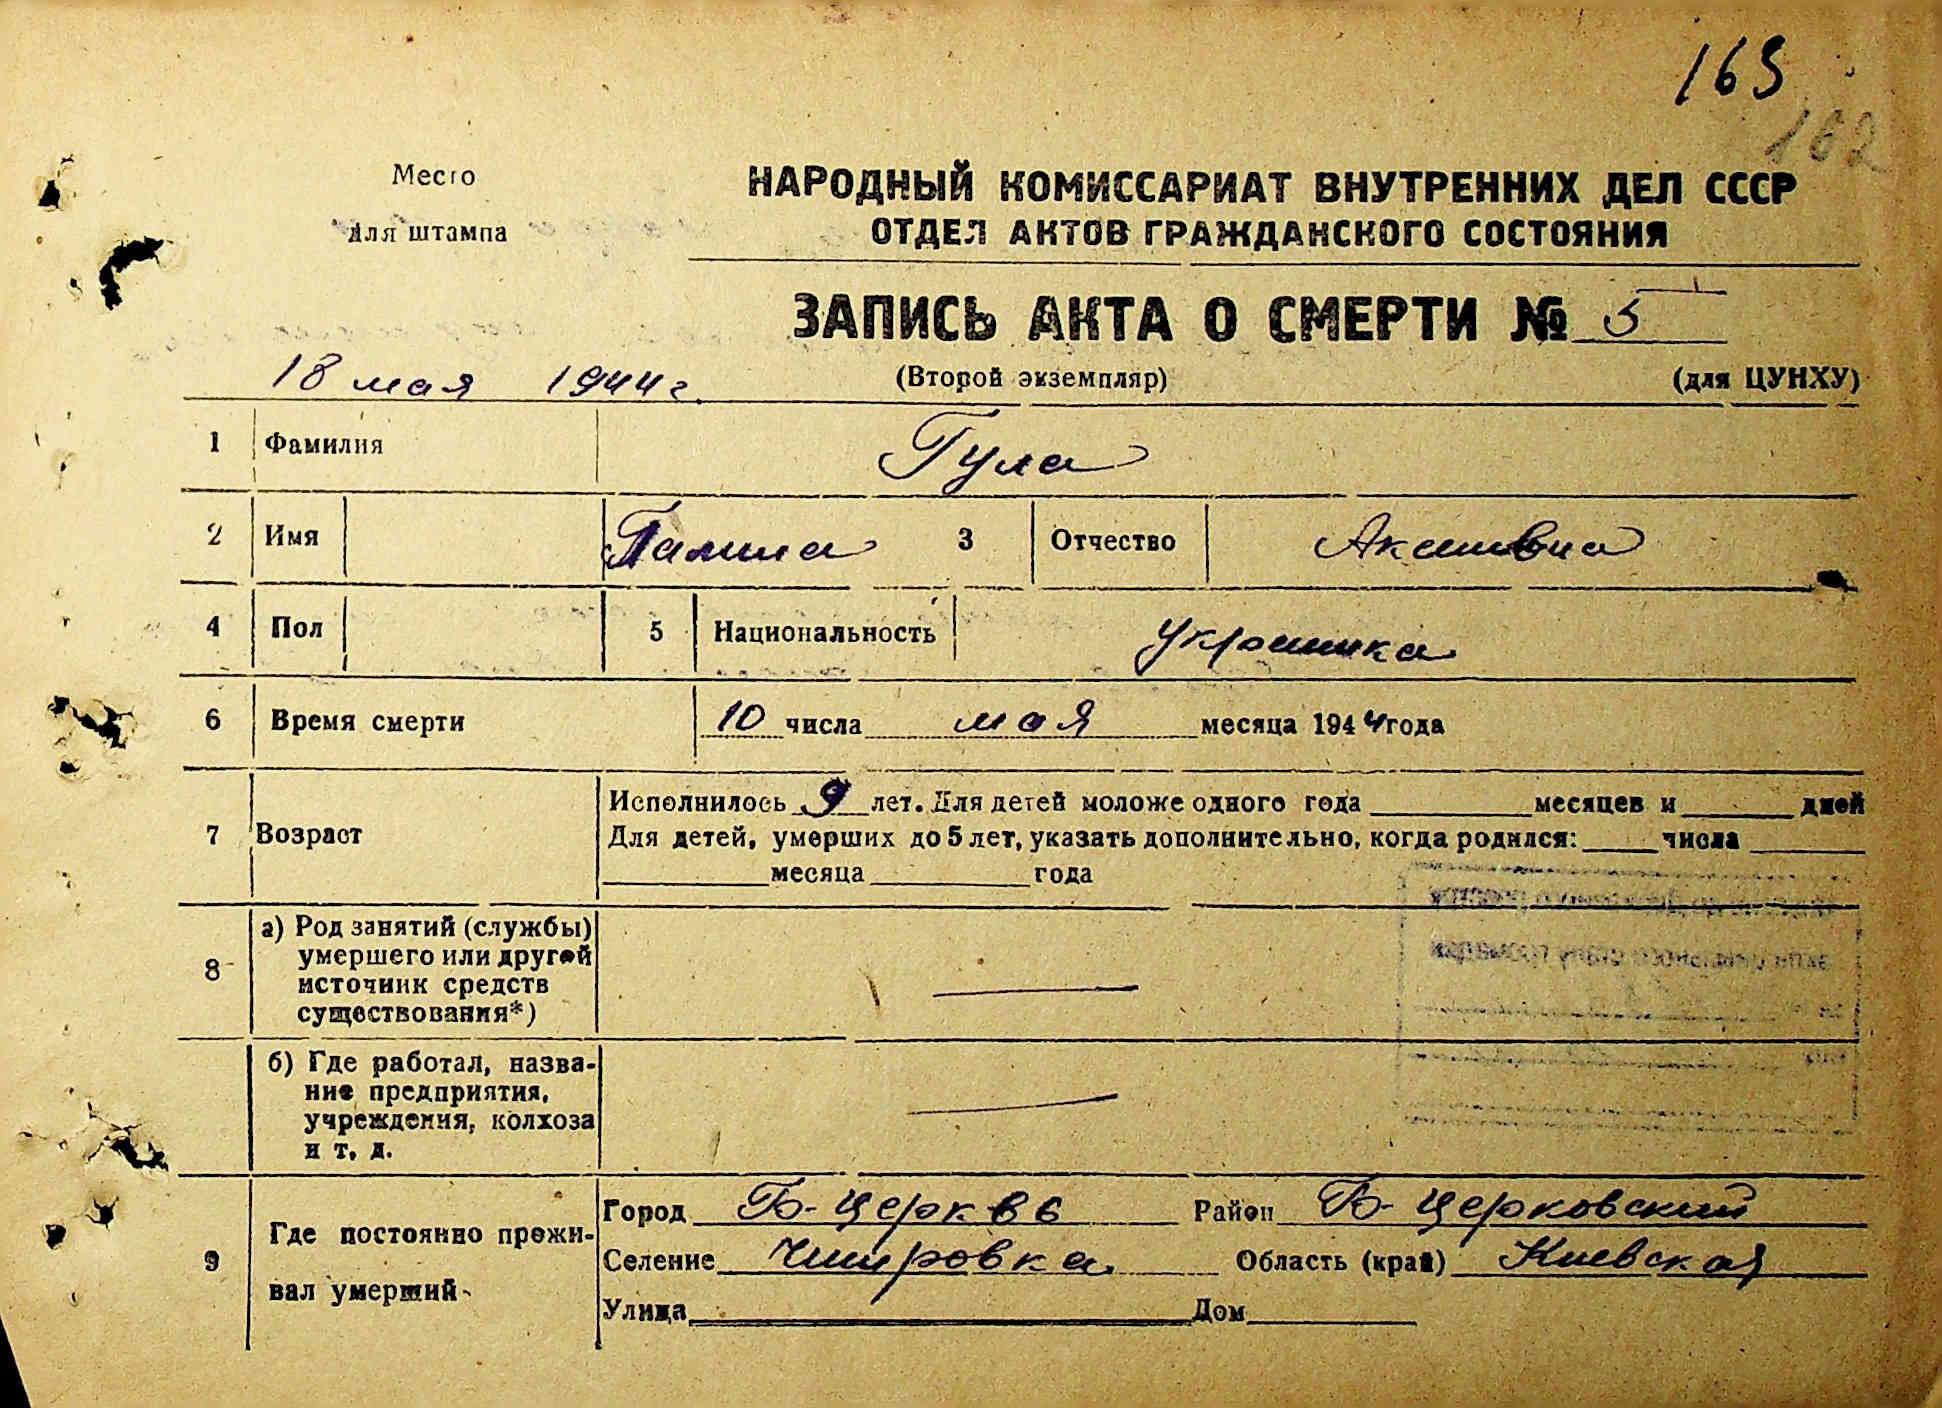 163
162
Место
для штампа
НАРОДНЫЙ КОМИССАРИАТ ВНУТРЕННИХ ДЕЛ СССР
ОТДЕЛ АКТОВ ГРАЖДАНСКОГО СОСТОЯНИЯ
ЗАПИСЬ АКТА О СМЕРТИ № 5
18 мая 1944 г. (Второй экземпляр) (для ЦУНХУ)
1 Фамилия Гула
2 Имя Галина 3 Отчество
4 Пол 5 Национальность Украинка
6 Время смерти 10 числа мая месяца 1944 года
7 Возраст Исполнилось 9 лет. Для детей моложе одного года месяцев и дней
Для детей, умерших до 5 лет, указать дополнительно, когда родился: числа
месяца года
8 а) Род занятий (службы)
умершего или другой
источник средств
существования*)
б) Где работал, назва-
ние предприятия,
учреждения, колхоза
и т. д.
9 Где постоянно прожи-
вал умерший
Город Б-Церквь Район Б-Церковский
Селение Область (край) Киевская
Улица Дом